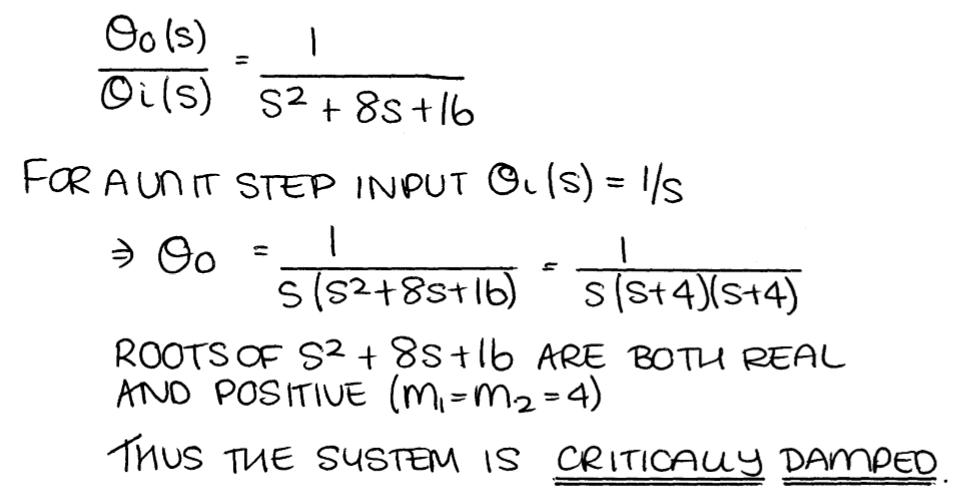 θo(s)/θi(s) = 1/(s² + 8s + 16)
FOR A UNIT STEP INPUT θi(s) = 1/s
⇒ θo = 1/(s(s²+8s+16)) = 1/(s(s+4)(s+4))
ROOTS OF s² + 8s + 16 ARE BOTH REAL
AND POSITIVE (m₁=m₂=4)
THUS THE SYSTEM IS CRITICALLY DAMPED.